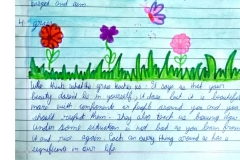 beyond and own
4. grass
We think what the grass teaches us. It says us that your
beauty doesn't lie in yourself, it does but it is beautiful
more such components or people around you and you
should respect them. They also teach us bowing down
under some situation is not bad as you learn from
it and rise again. Each an every thing around us has a
significance in our life